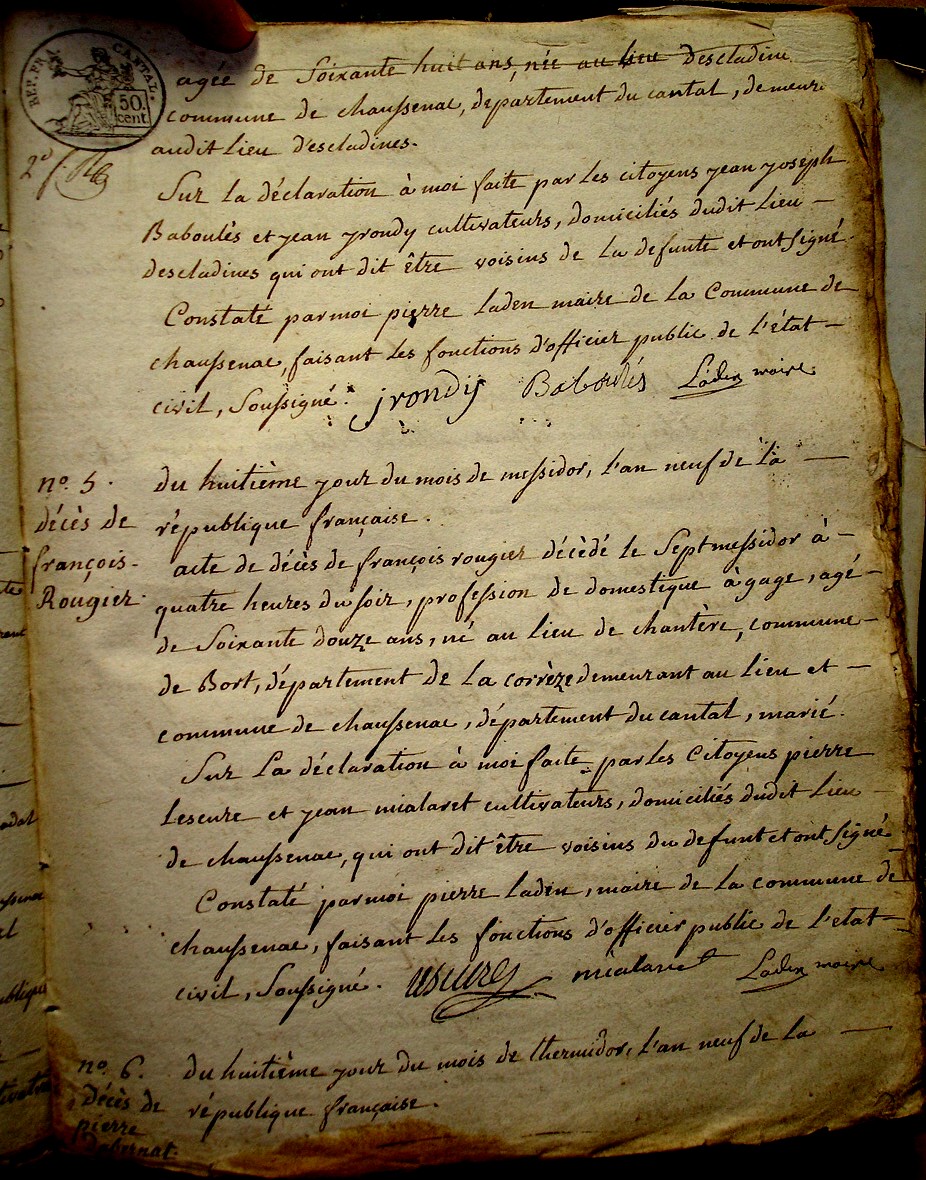 REP. FRA. CANTAL.
50.
cent.
agée de Soixante huit ans, née au lieu Descladine
commune de chaussenac, département du cantal, demeur
audit Lieu d'escladines.
Sur la déclaration à moi faite par Les citoyens jean joseph
Baboulès et jean jrondy cultivateurs, domiciliés dudit Lieu —
descladines qui ont dit être voisins de la defunte et ont signé.
Constaté par moi pierre Laden maire de la Commune de
chaussenac, faisant Les fonctions d'officier public de L'état —
civil, Soussigné. jrondy Baboulés Laden maire
n.º 5.
décès de
françois
Rougier.
du huitième jour du mois de messidor, l'an neuf de la —
république française.
acte de décès de françois rougier décèdé le Sept messidor à —
quatre heures du soir, profession de domestique à gage, agé —
de Soixante douze ans, né au lieu de chantère, commune —
de Bort, département de La corrèze demeurant au Lieu et —
commune de chaussenac, département du cantal, marié.
Sur La déclaration à moi faite par les Citoyens pierre
Leseure et jean mialaret cultivateurs, domiciliés dudit Lieu —
de chaussenac, qui ont dit être voisins du defunt et ont signé
Constaté par moi pierre Laden, maire de La commune de
chaussenac, faisant Les fonctions d'officier public de l'etat —
civil, Soussigné. mialaret Laden maire
n.º 6.
décès de
pierre
du huitième jour du mois de thermidor, l'an neuf de la —
république française.